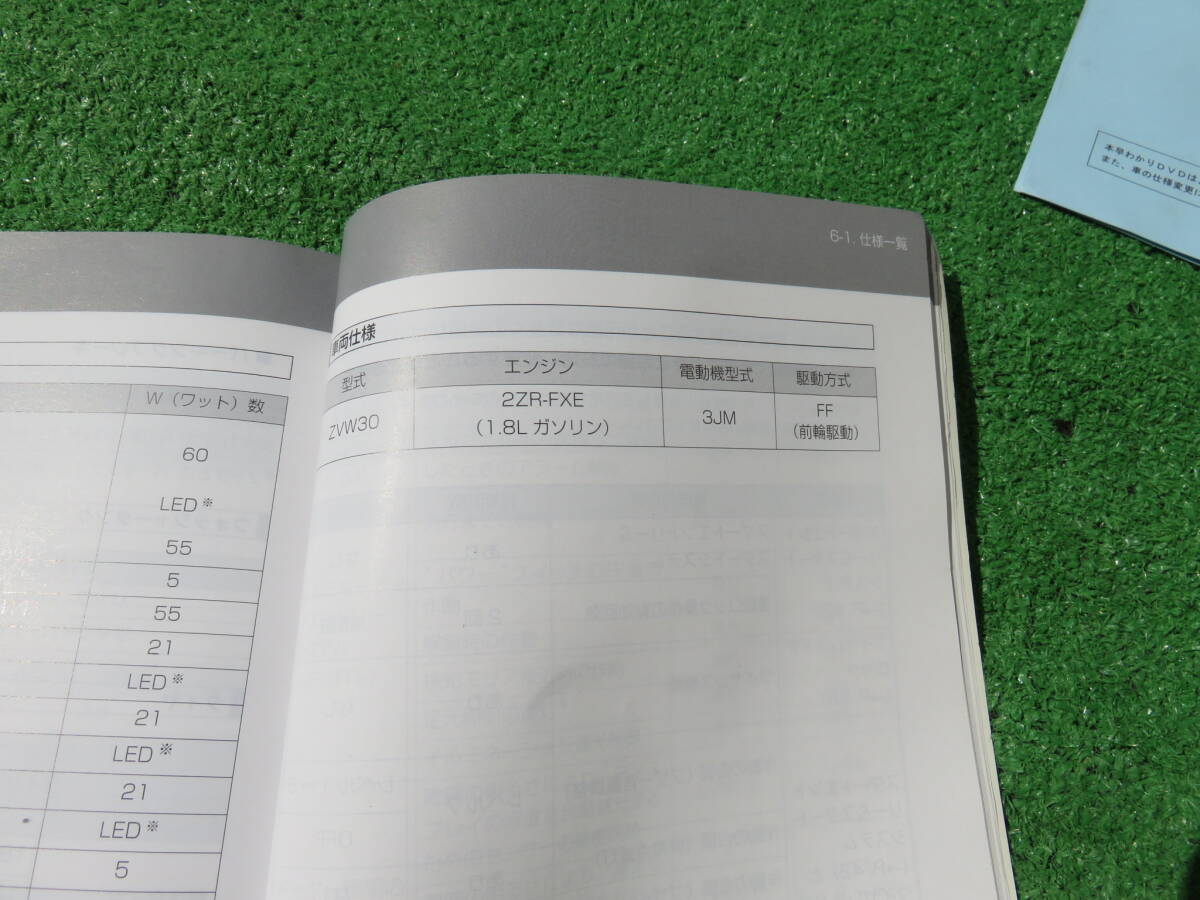 W（ワット）数
60
LED※
55
5
55
21
LED※
21
LED※
21
LED※
5
6-1. 仕様一覧
車両仕様
型式 エンジン 電動機型式 駆動方式
ZVW30 2ZR-FXE 3JM FF
（1.8L ガソリン） （前輪駆動）
本早わかりＤＶＤは、
また、車の仕様変更に